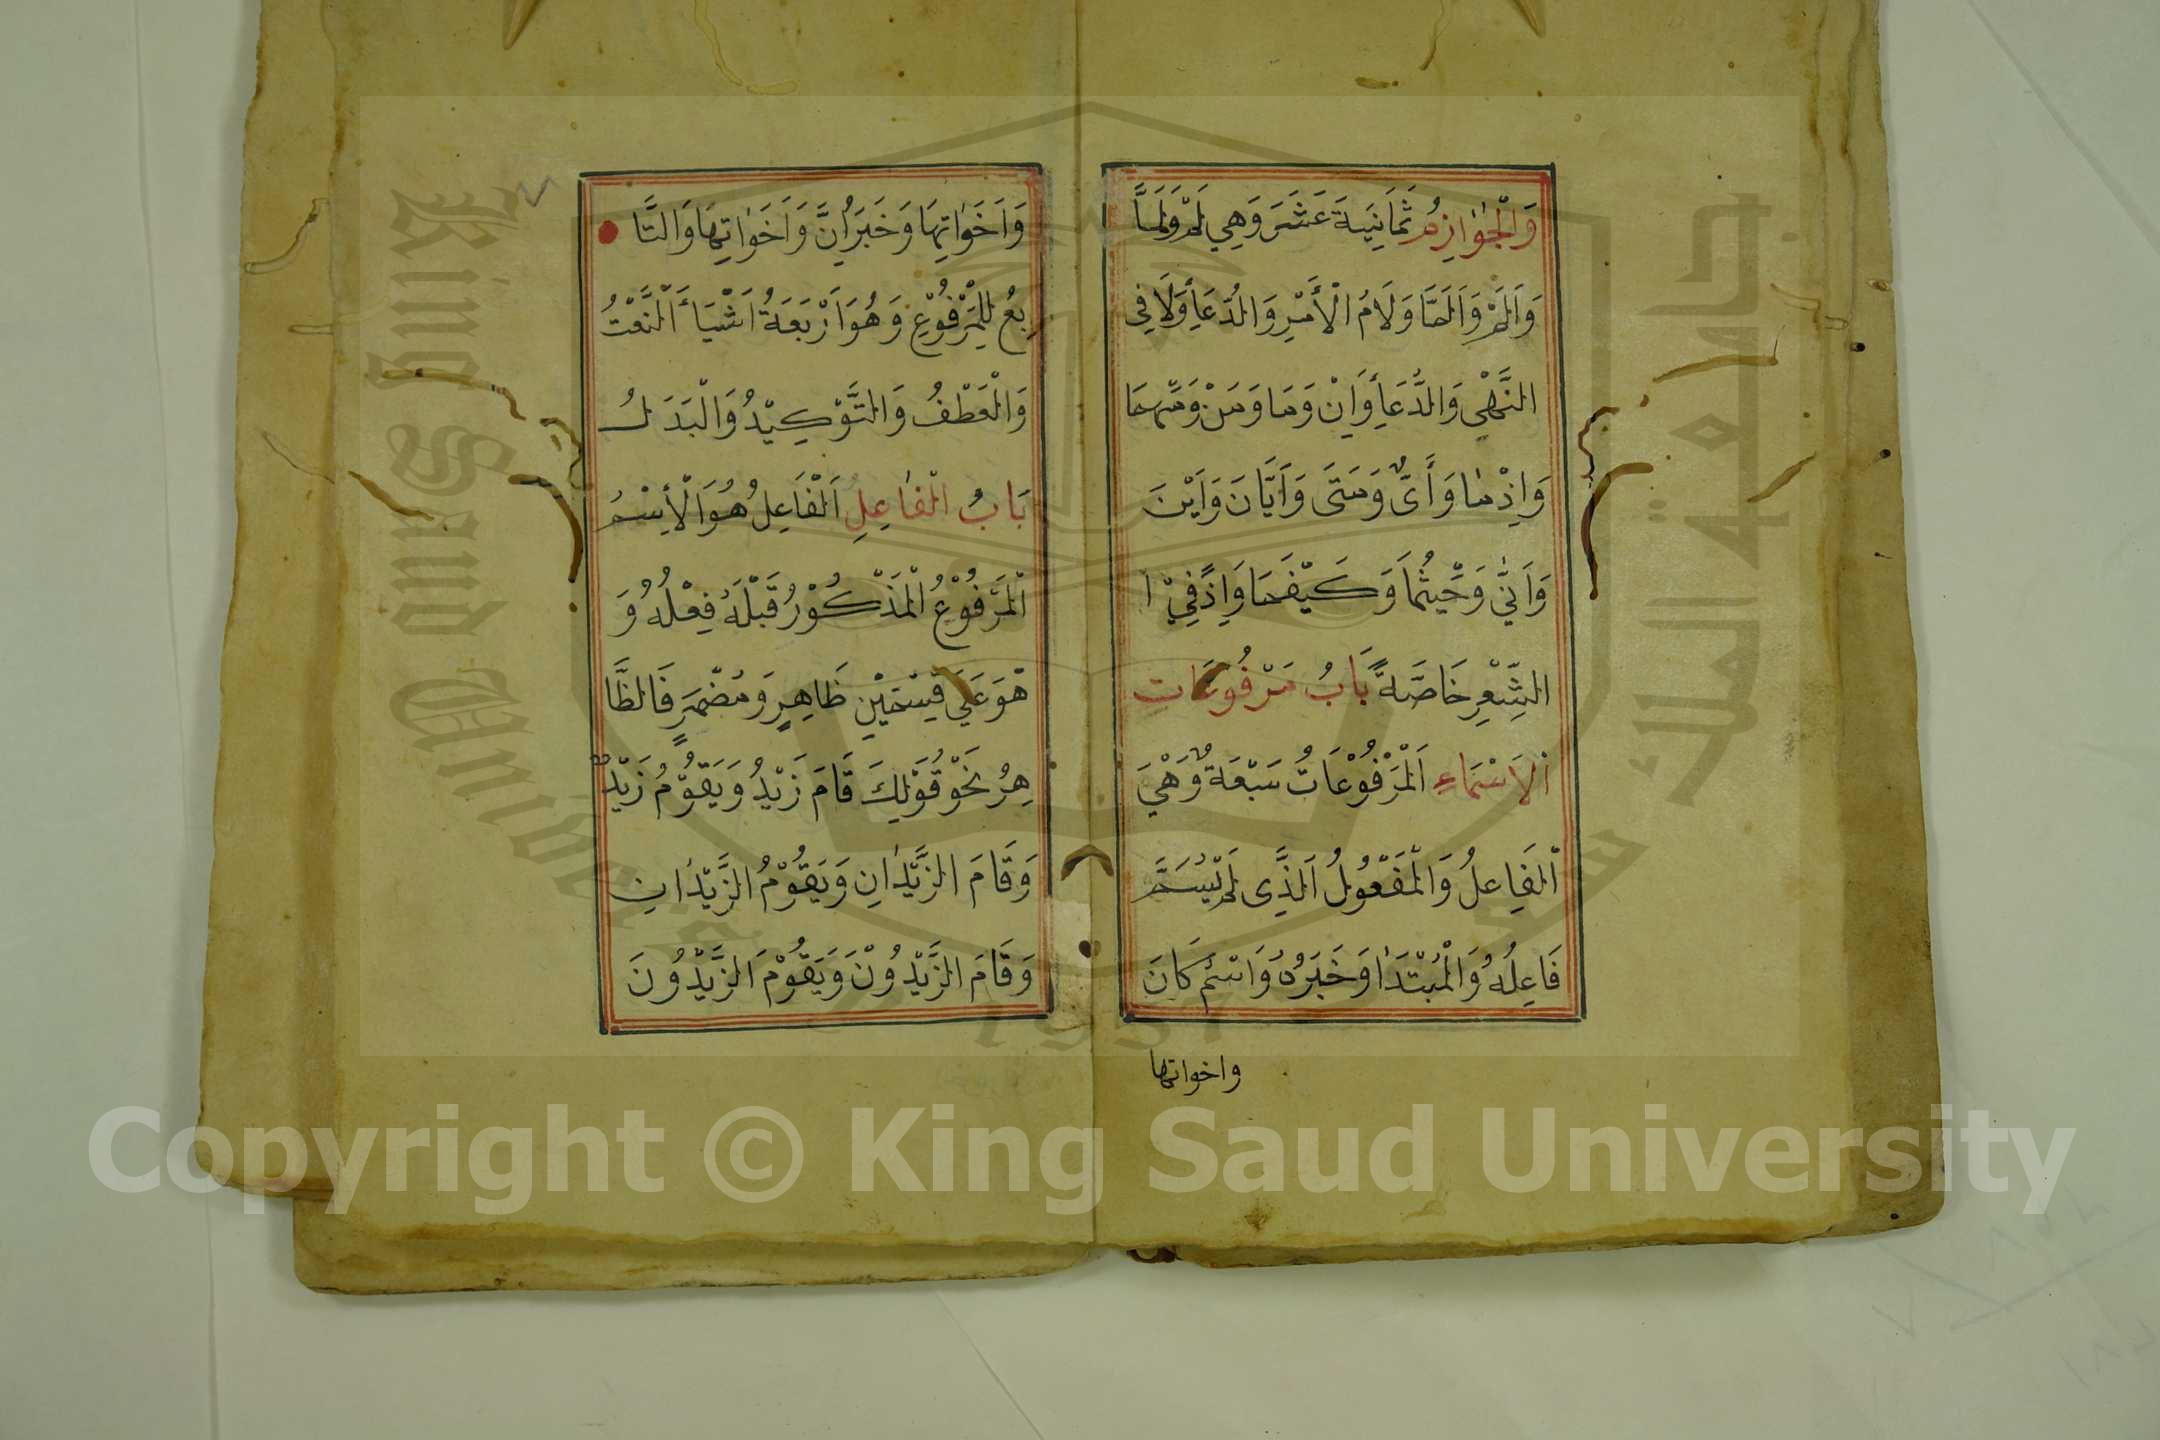 وَالْجَوَازِمُ ثَمَانِيَةَ عَشَرَ وَهِي لَمْ وَلَمَّا
وَأَلَمْ وَأَلَمَّا وَلَامُ الْأَمْرِ وَالدُّعَاءِ وَلَا فِي
النَّهْي وَالدُّعَاءِ وَإِنْ وَمَا وَمَنْ وَمَهْمَا
وَإِذْمَا وَأَيٌّ وَمَتَى وَأَيَّانَ وَأَيْنَ
وَأَنّٰى وَحَيْثُمَا وَكَيْفَمَا وَإِذًا فِيْ ا
الشِّعْرِ خَاصَّةً بَابُ مَرْفُوعَاتِ
الْاَسْمَاءِ اَلْمَرْفُوْعَاتُ سَبْعَةٌ وَهْيَ
اْلفَاعِلُ وَالْمَفْعُولُ اَلَّذِى لَمْ يُسَمَّ
فَاعِلُهُ وَالْمُبْتَدَا وَخَبَرُهُ وَاسْمُ كَانَ
واخواتها
وَاَخَوَاتِهَا وَخَبَرُ اِنَّ وَاَخَوَاتِهَا وَالتَّا
بِعُ لِلْمَرْفُوْعِ وَهُوَ اَرْبَعَةُ اَشْيَاءَ اَلنَّعْتُ
وَالْعَطْفُ وَالتَّوْكِيْدُ وَالْبَدَلُ
بَابُ الْفَاعِلِ اَلْفَاعِلُ هُوَ الْاِسْمُ
اْلمَرْفُوْعُ الْمَذْكُوْرُ قَبْلَهُ فِعْلُهُ وَ
هْوَ عَلَى قِسْمَيْنِ ظَاهِرٍ وَمُضْمَرٍ فَالظَّا
هِرُ نَحْوُ قَوْلِكَ قَامَ زَيْدُ وَيَقُوْمُ زَيْدٌ
وَقَامَ الزَّيْدَانِ وَيَقُوْمُ الزَّيْدَانِ
وَقَامَ الزَّيْدُوْنَ وَيَقُوْمَ الزَّيْدُونَ
King Saud University
جامعة الملك سعود
1957
Copyright © King Saud University